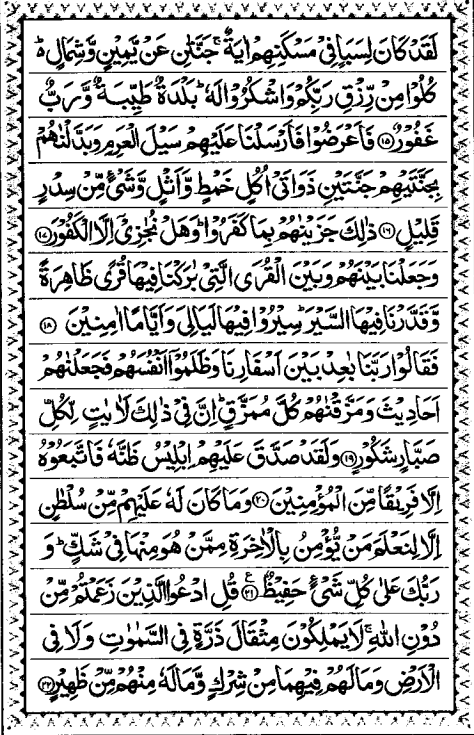 لَقَدْ كَانَ لِسَبَاٍ فِیْ مَسْكَنِهِمْ اٰیَةٌ ۚ جَنَّتٰنِ عَنْ یَّمِیْنٍ وَّشِمَالٍ ؕ
كُلُوْا مِنْ رِّزْقِ رَبِّكُمْ وَاشْكُرُوْا لَهٗ ؕ بَلْدَةٌ طَیِّبَةٌ وَّرَبٌّ
غَفُوْرٌ ﴿۱۵﴾ فَاَعْرَضُوْا فَاَرْسَلْنَا عَلَیْهِمْ سَیْلَ الْعَرِمِ وَبَدَّلْنٰهُمْ
بِجَنَّتَیْهِمْ جَنَّتَیْنِ ذَوَاتَیْ اُكُلٍ خَمْطٍ وَّاَثْلٍ وَّشَیْءٍ مِّنْ سِدْرٍ
قَلِیْلٍ ﴿۱۶﴾ ذٰلِكَ جَزَیْنٰهُمْ بِمَا كَفَرُوْا ؕ وَهَلْ نُجٰزِیْۤ اِلَّا الْكَفُوْرَ ﴿۱۷﴾
وَجَعَلْنَا بَیْنَهُمْ وَبَیْنَ الْقُرَی الَّتِیْ بٰرَكْنَا فِیْهَا قُرًی ظَاهِرَةً
وَّقَدَّرْنَا فِیْهَا السَّیْرَ ؕ سِیْرُوْا فِیْهَا لَیَالِیَ وَاَیَّامًا اٰمِنِیْنَ ﴿۱۸﴾
فَقَالُوْا رَبَّنَا بٰعِدْ بَیْنَ اَسْفَارِنَا وَظَلَمُوْۤا اَنْفُسَهُمْ فَجَعَلْنٰهُمْ
اَحَادِیْثَ وَمَزَّقْنٰهُمْ كُلَّ مُمَزَّقٍ ؕ اِنَّ فِیْ ذٰلِكَ لَاٰیٰتٍ لِّكُلِّ
صَبَّارٍ شَكُوْرٍ ﴿۱۹﴾ وَلَقَدْ صَدَّقَ عَلَیْهِمْ اِبْلِیْسُ ظَنَّهٗ فَاتَّبَعُوْهُ
اِلَّا فَرِیْقًا مِّنَ الْمُؤْمِنِیْنَ ﴿۲۰﴾ وَمَا كَانَ لَهٗ عَلَیْهِمْ مِّنْ سُلْطٰنٍ
اِلَّا لِنَعْلَمَ مَنْ یُّؤْمِنُ بِالْاٰخِرَةِ مِمَّنْ هُوَ مِنْهَا فِیْ شَكٍّ ؕ وَ
رَبُّكَ عَلٰی كُلِّ شَیْءٍ حَفِیْظٌ ﴿۲۱﴾ ع قُلِ ادْعُوا الَّذِیْنَ زَعَمْتُمْ مِّنْ
دُوْنِ اللّٰهِ ۚ لَا یَمْلِكُوْنَ مِثْقَالَ ذَرَّةٍ فِی السَّمٰوٰتِ وَلَا فِی
الْاَرْضِ وَمَا لَهُمْ فِیْهِمَا مِنْ شِرْكٍ وَّمَا لَهٗ مِنْهُمْ مِّنْ ظَهِیْرٍ ﴿۲۲﴾